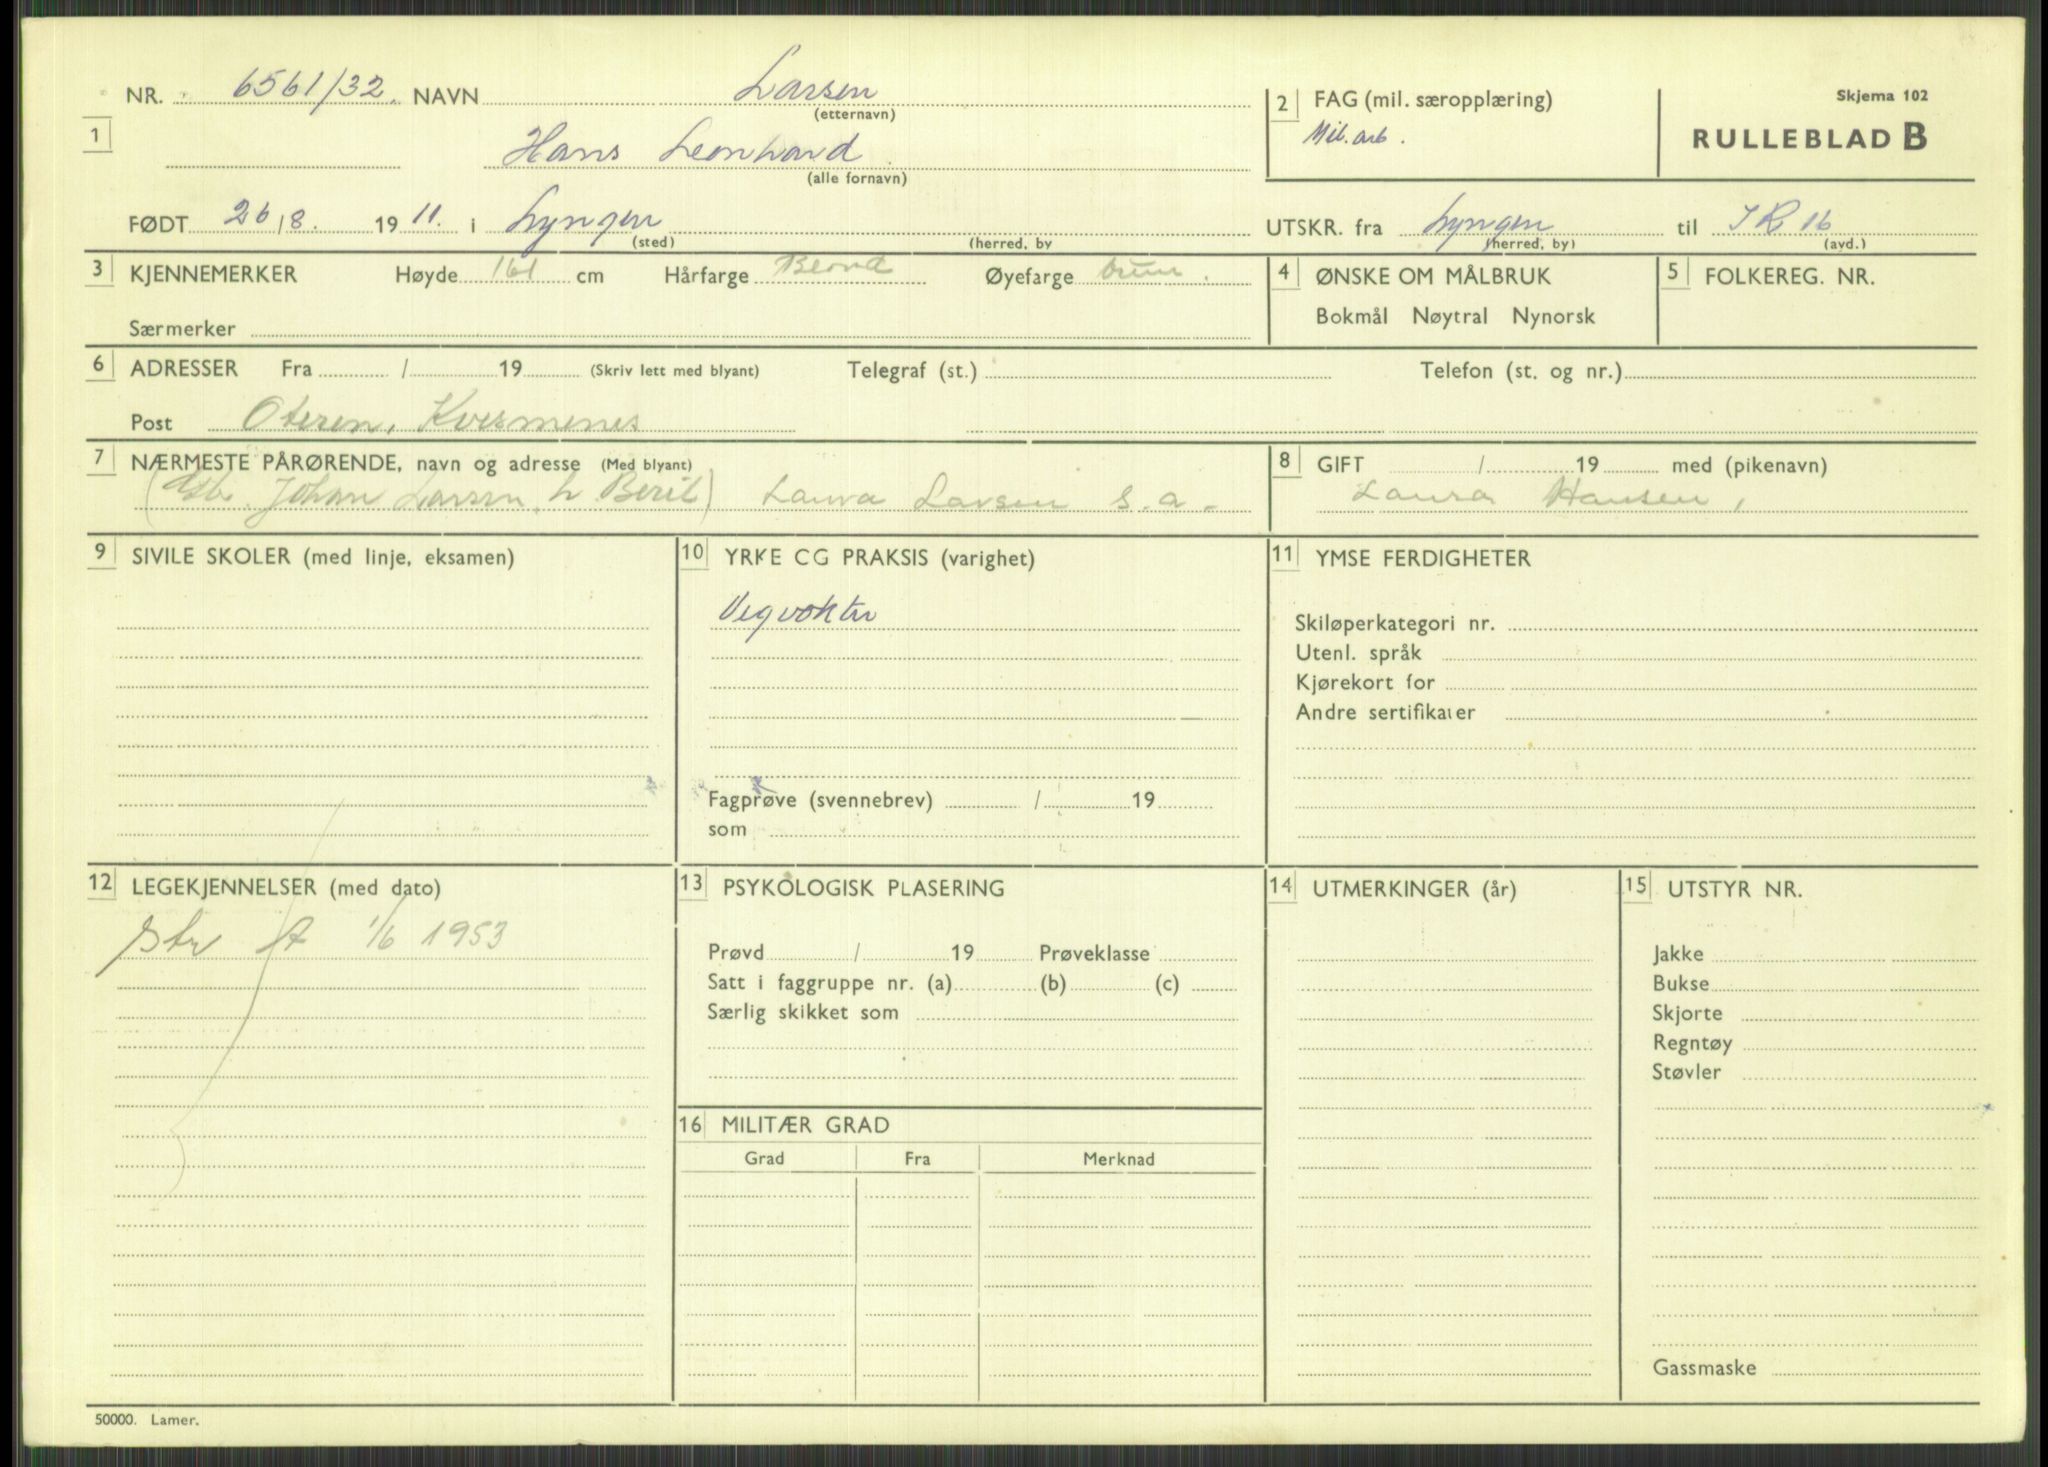 NR. 6561/32. NAVN Larsen
(etternavn)
1 Hans Leonhard
(alle fornavn)
FØDT 26/8. 1911. i Lyngen
(sted) (herred, by
2 FAG (mil. særopplæring)
Mil. arb.
Skjema 102
RULLEBLAD B
UTSKR. fra Lyngen til IR 16
(herred, by) (avd.)
3 KJENNEMERKER Høyde 161 cm Hårfarge Blond Øyefarge brun.
Særmerker
4 ØNSKE OM MÅLBRUK
Bokmål Nøytral Nynorsk
5 FOLKEREG. NR.
6 ADRESSER Fra / 19 (Skriv lett med blyant) Telegraf (st.) Telefon (st. og nr.)
Post Oteren, Kvesmenes
7 NÆRMESTE PÅRØRENDE, navn og adresse (Med blyant)
Johan Larsen, h. Beril) Laura Larsen s.a.
8 GIFT / 19 med (pikenavn)
Laura Hansen,
9 SIVILE SKOLER (med linje, eksamen)
10 YRKE CG PRAKSIS (varighet)
Vegvokter
Fagprøve (svennebrev) / 19
som
11 YMSE FERDIGHETER
Skiløperkategori nr.
Utenl. språk
Kjørekort for
Andre sertifikater
12 LEGEKJENNELSER (med dato)
Str A 1/6 1953
13 PSYKOLOGISK PLASERING
Prøvd / 19 Prøveklasse
Satt i faggruppe nr. (a) (b) (c)
Særlig skikket som
14 UTMERKINGER (år)
15 UTSTYR NR.
Jakke
Bukse
Skjorte
Regntøy
Støvler
Gassmaske
16 MILITÆR GRAD
Grad Fra Merknad
50000. Lamer.